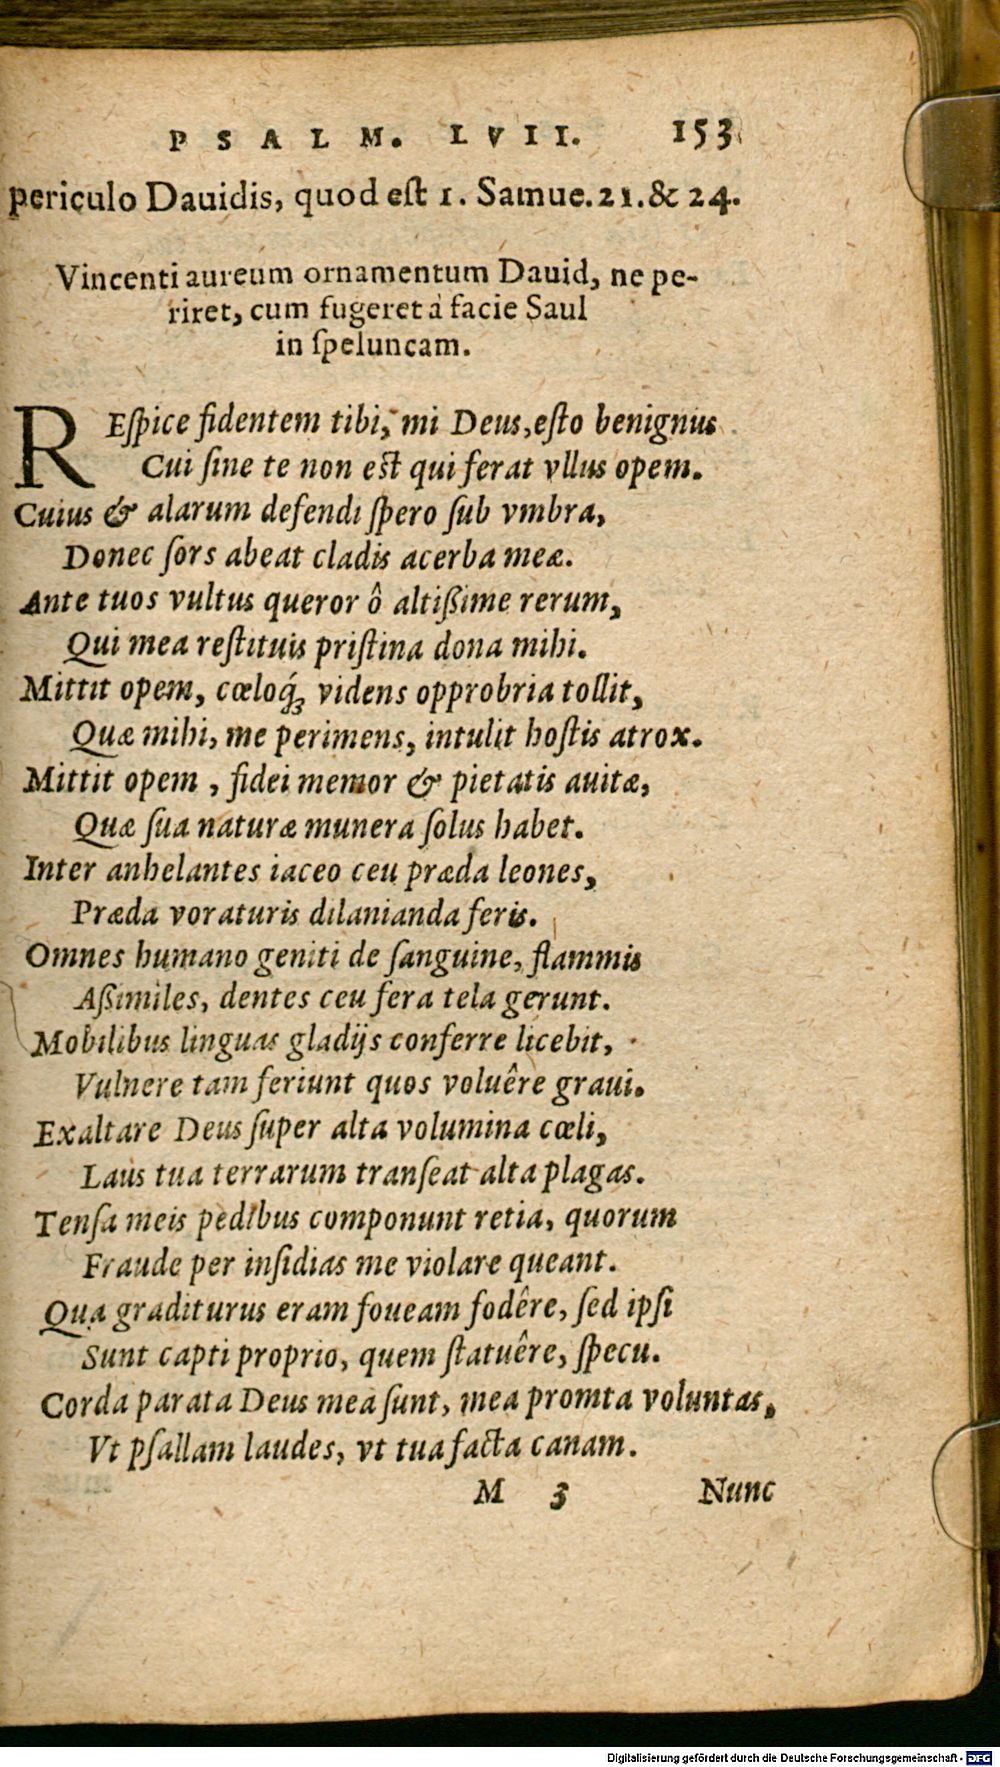 PSALM. LVII. 153
periculo Dauidis, quod est 1. Samue. 21. & 24.
Vincenti aureum ornamentum Dauid, ne pe-
riret, cum fugeret à facie Saul
in ſpeluncam.
REſpice fidentem tibi, mi Deus, eſto benignus
Cui ſine te non est qui ferat vllus opem.
Cuius & alarum defendi ſpero ſub vmbra,
Donec ſors abeat cladis acerba meæ.
Ante tuos vultus queror ô altißime rerum,
Qui mea reſtituis priſtina dona mihi.
Mittit opem, cœloq́ꝫ videns opprobria tollit,
Quæ mihi, me perimens, intulit hoſtis atrox.
Mittit opem, fidei memor & pietatis auitæ,
Quæ ſua naturæ munera ſolus habet.
Inter anhelantes iaceo ceu præda leones,
Præda voraturis dilanianda feris.
Omnes humano geniti de ſanguine, flammis
Aßimiles, dentes ceu fera tela gerunt.
Mobilibus linguas gladijs conferre licebit,
Vulnere tam feriunt quos voluêre graui.
Exaltare Deus ſuper alta volumina cœli,
Laus tua terrarum tranſeat alta plagas.
Tenſa meis pedibus componunt retia, quorum
Fraude per inſidias me violare queant.
Qua graditurus eram foueam fodêre, ſed ipſi
Sunt capti proprio, quem ſtatuêre, ſpecu.
Corda parata Deus mea ſunt, mea promta voluntas,
Vt pſallam laudes, vt tua facta canam.
M 3 Nunc
Digitalisierung gefördert durch die Deutsche Forschungsgemeinschaft - DFG